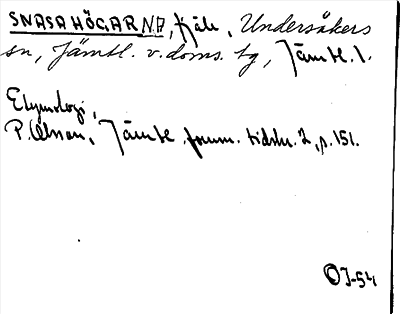 SNASAHÖGARNA, fjäll, Undersåkers
sn, Jämtl. v. doms. tg, Jämtl. l.
Etymologi,
P. Olsson, Jämtl. fornm. tidskr. 2, p. 151.
OJ-54